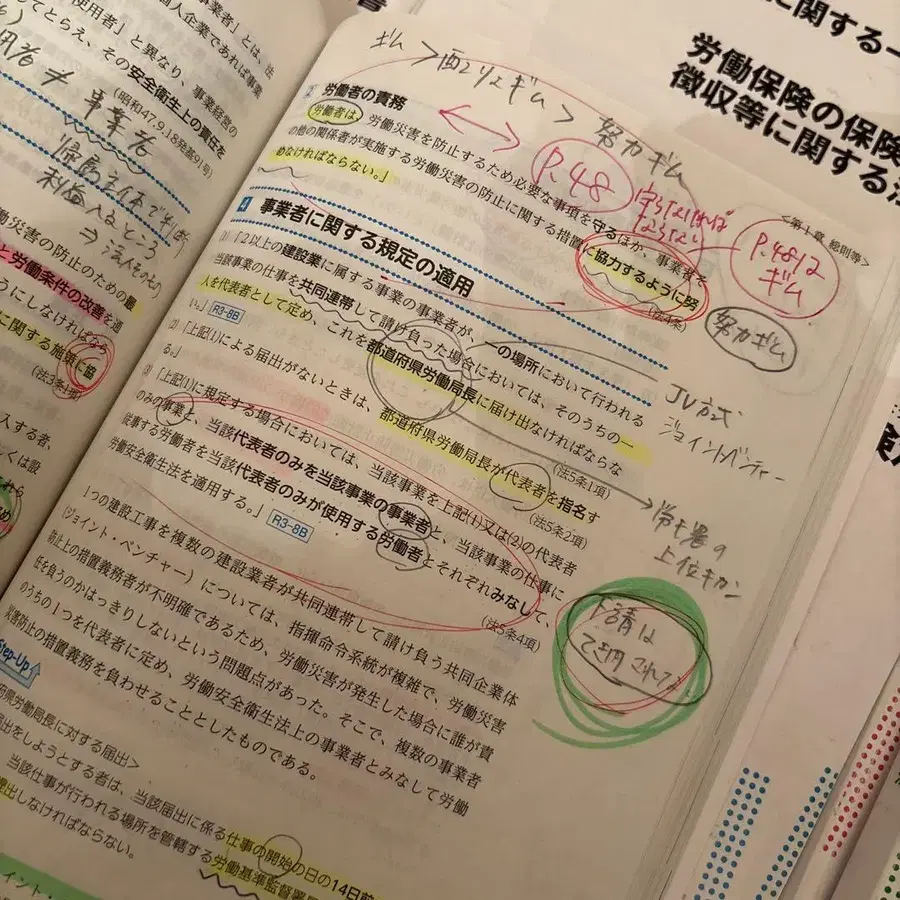 事業者」とは、法
使用者」と異なり、事業経営の
してとらえ、その安全衛生上の責任を
(昭和47.9.18発基91号)
事業者
帰属主体で判断
利益入るところ
労働災害の防止のための最
と労働条件の改善を通
うにしなければなら
に関する施策に協
(法3条1項)
入する者、
ギム
努力ギム
2 労働者の責務
労働者は、労働災害を防止するため必要な事項を守るほか、事業者そ
の他の関係者が実施する労働災害の防止に関する措置に協力するように努
めなければならない。」
(法4条)
P.48
守らなければ
ならない
P.4812
ギム
努力ギム
<第1章 総則等>
4 事業者に関する規定の適用
(1) 「2以上の建設業に属する事業の事業者が、一の場所において行われる
当該事業の仕事を共同連帯して請け負った場合においては、そのうちの一
人を代表者として定め、これを都道府県労働局長に届け出なければならな
い。」 R3-8B
(法5条1項)
(2) 「上記(1)による届出がないときは、都道府県労働局長が代表者を指名す
る。」
(法5条2項)
(3) 「上記(1)に規定する場合においては、当該事業を上記(1)又は(2)の代表者
のみの事業と、当該代表者のみを当該事業の事業者と、当該事業の仕事に
従事する労働者を当該代表者のみが使用する労働者とそれぞれみなして、
労働安全衛生法を適用する。」 R3-8B
(法5条4項)
JV方式
ジョイントベンチャー
上位キカン
下請は
1つの建設工事を複数の建設業者が共同連帯して請け負う共同企業体
(ジョイント・ベンチャー)については、指揮命令系統が複雑で、労働災害
防止上の措置義務者が不明確であるため、労働災害が発生した場合に誰が責
任を負うのかはっきりしないという問題点があった。そこで、複数の事業者
のうちの1つを代表者に定め、労働安全衛生法上の事業者とみなして労働
災害防止の措置義務を負わせることとしたものである。
Step-Up
府県労働局長に対する届出>
届出をしようとする者は、当該届出に係る仕事の開始の日の14日前
当該仕事が行われる場所を管轄する労働基準監督署
提出しなければならない。
に関する
労働保険の保険
徴収等に関する法